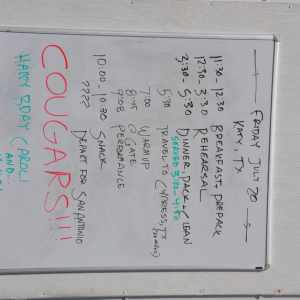 FRIDAY JULY 20
KATY, TX
11:30 - 12:30 BREAKFAST + PREPACK
12:30 - 3:30 REHEARSAL
3:30 - 5:30 DINNER, PACK + CLEAN
SERVED 3:30 - 4:30
5:30 TRAVEL TO CYPRESS, TX
7:00 WARMUP
8:45 @ GATE
9:08 PERFORMANCE
10:00 - 10:30 SNACK
???? DEPART FOR SAN ANTONIO
COUGARS!!!
HAPPY BDAY CAROLI
AND